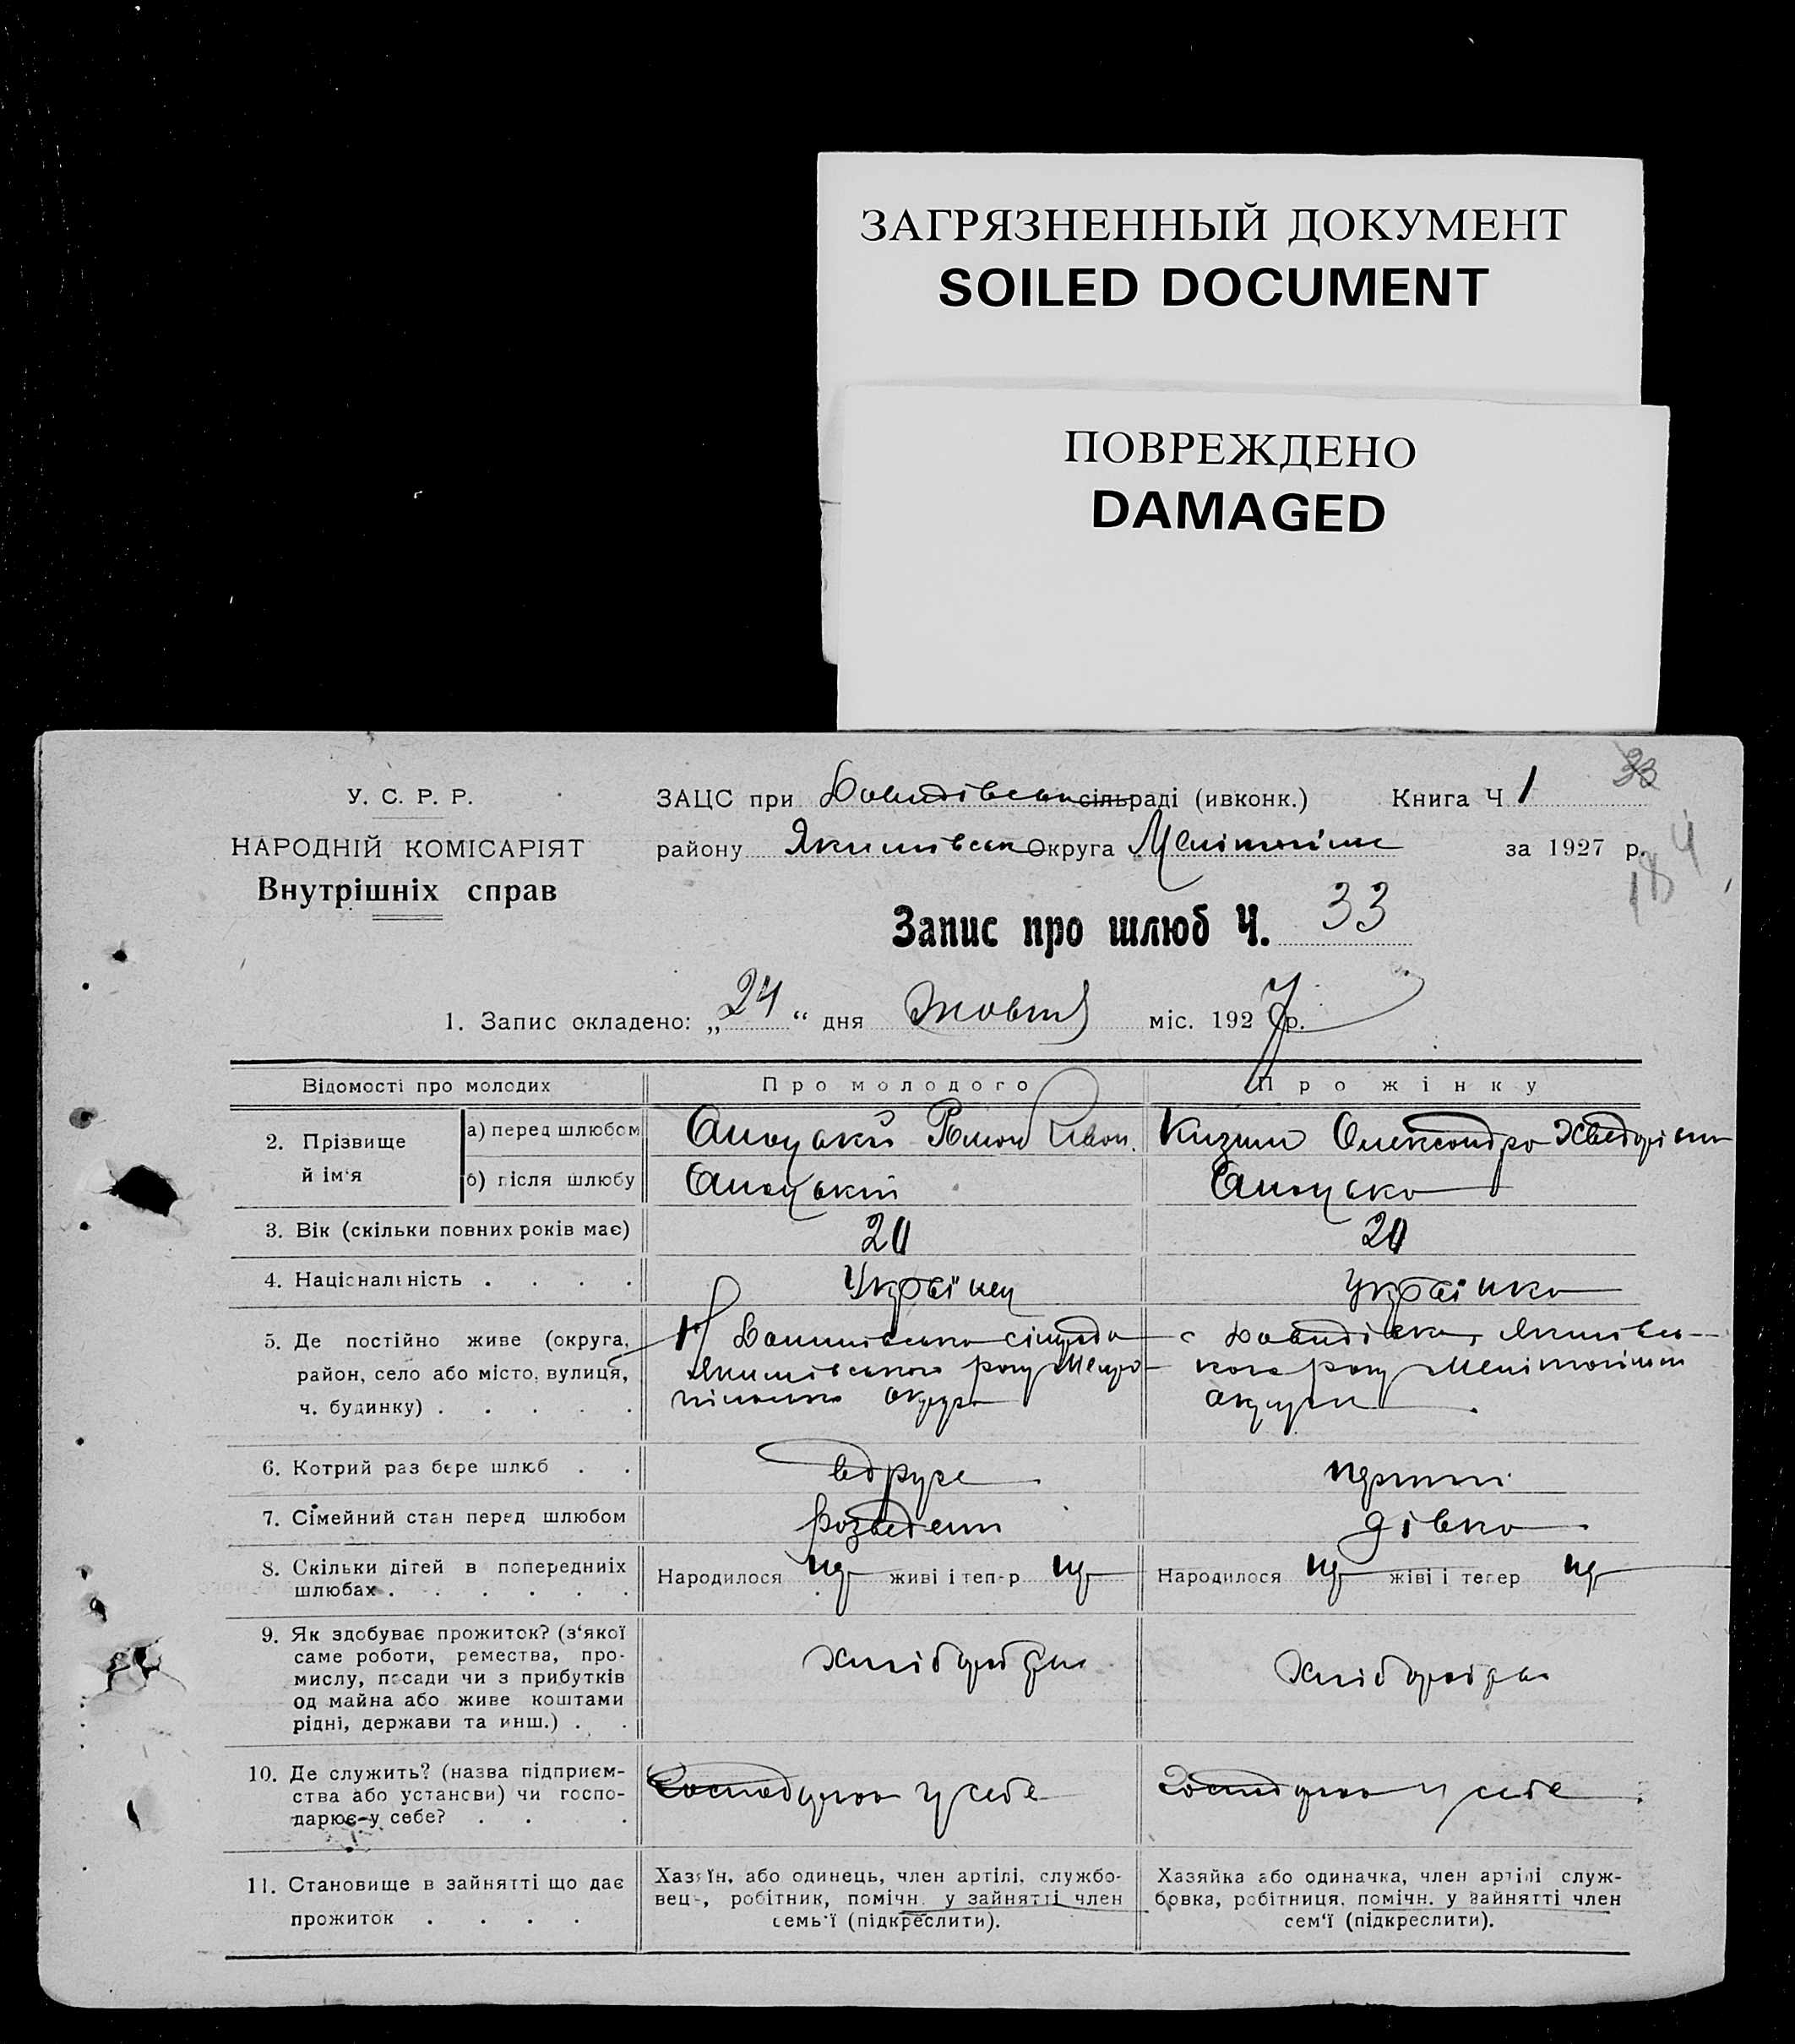 ЗАГРЯЗНЕННЫЙ ДОКУМЕНТ
SOILED DOCUMENT
ПОВРЕЖДЕНО
DAMAGED
33
У. С. Р. Р.
НАРОДНІЙ КОМІСАРІЯТ
Внутрішніх справ
ЗАЦС при Давидівськ сільраді (ивконк.) Книга Ч 1
району Якимівськ Округа за 1927 р.
184
Запис про шлюб Ч. 33
1. Запис складено: „24“ дня Жовтня міс. 1927 р.
Відомості про молодих
Про молодого
Про жінку
2. Прізвище й ім‘я
а) перед шлюбом
Роман Иван.
Олександра
б) після шлюбу
3. Вік (скільки повних років має)
20
20
4. Національність . . . .
Українец
Українка
5. Де постійно живе (округа,
район, село або місто, вулиця,
ч. будинку) . . . . .
Якимівського
округа
с Давидівка, Якимівсь-
кого
округи
6. Котрий раз бере шлюб . .
вдруге
перший
7. Сімейний стан перед шлюбом
розведений
дівка
8. Скільки дітей в попередниіх
шлюбах . . . . . .
Народилося живі і тепер
Народилося жіві і тепер
9. Як здобуває прожиток? (з‘якої
саме роботи, ремества, про-
мислу, посади чи з прибутків
од майна або живе коштами
рідні, держави та инш.) . .
Хліборобри
Хліборобри
10. Де служить? (назва підприєм-
ства або установи) чи госпо-
дарює-у себе? . . .
у себе
у себе
11. Становище в зайнятті що дає
прожиток . . . .
Хазяїн, або одинець, член артілі, службо-
вець, робітник, помічн. у зайнятті член
семь‘ї (підкреслити).
Хазяйка або одиначка, член артілі служ-
бовка, робітниця, помічн. у зайнятті член
сем‘ї (підкреслити).